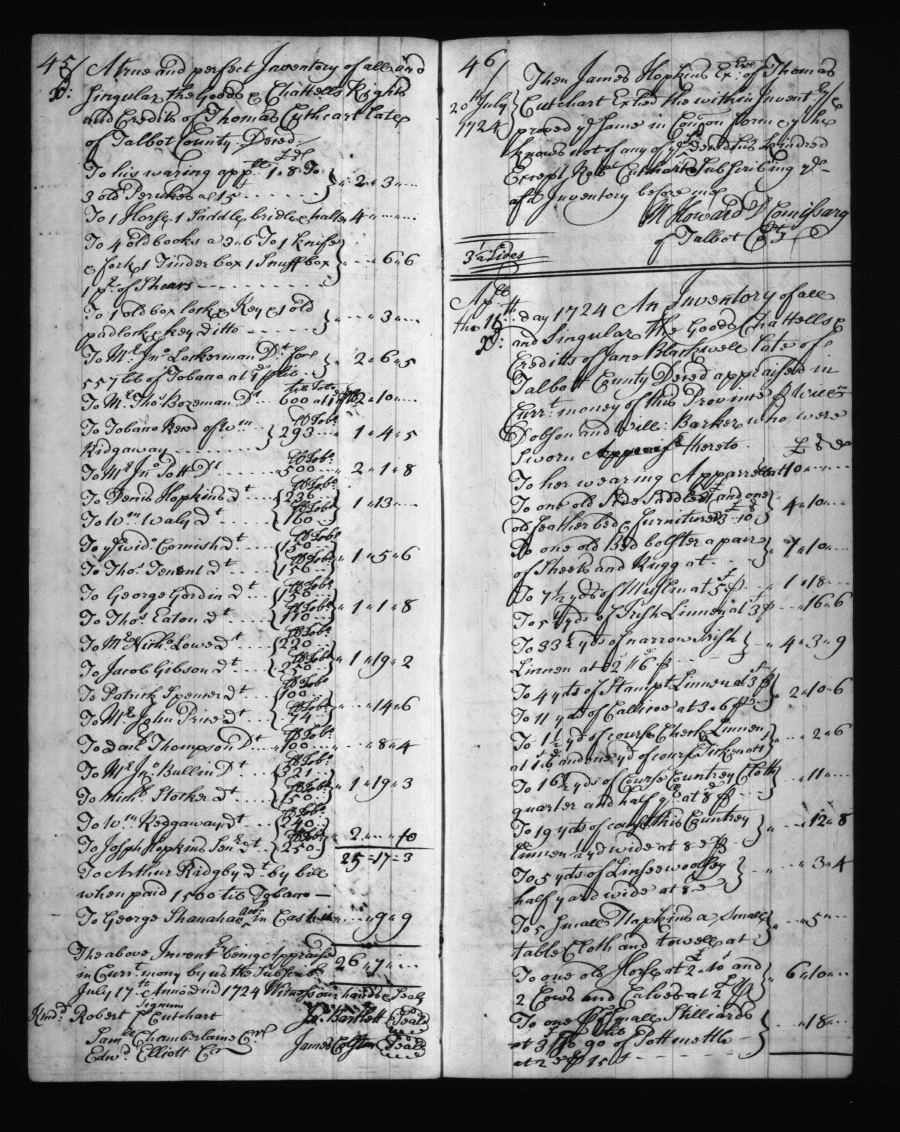 45
A true and perfect Inventory of all and
Singular the Goods & Chattells Rights
and Credits of Thomas Cuthcart late
of Talbot County Deced
£ s d
To his waring appll 1=8 To
3 old Perukes at 15 } " 2 " 3 " ...
To 1 Horse 1 Saddle bridle & halter 4 " ...
To 4 old books a 3=6 To 1 knife
& fork 1 Tinder box 1 Snuff box
1 pr. of Shears } " " 6 " 6
To 1 old box lock & Key & 1 old
padlock & key ditto } " " 3 " ...
To Mr. Jno. Lockerman Dt. fore
557 lib of Tobacco at 1d p lib } " 2 " 6 " 5
To Mr. Thos. Bozeman Dt. 600 at 1d 2 " 10 " ...
To Tobacco Reced of Wm.
Ridgaway 293 } " 1 " 4 " 5
To Mr. Jno. Pott Dt 500 " 2 " 1 " 8
To Denis Hopkins dt. 236
To Wm. Waly dt 160 } " 1 " 13 " ...
To ye wido. Cornish dt 150
To Thos. Tenent dt 156 } " 1 " 5 " 6
To George Gordin dt 150
To Thos. Eaton dt 110 } " 1 " 1 " 8
To Mr. Nicho. Lowe dt 220
To Jacob Gibson dt 250 } " 1 " 19 " 2
To Patrick Spencer dt 100
To Mr. John Price dt 74 } " " 14 " 6
To Danl. Thompson Dt 100 " " 8 " 4
To Mr. Jno. Bullen Dt 321
To Michl. Stoker dt 150 } " 1 " 19 " 3
To Wm. Redgaway dt 240
To Joseph Hopkins Senr. dt 250 } 2 " " 10
25 = 17 = 3
To Arthur Ridgby dt. by bill
when paid 1500 lib Tobacco
To George Shanahan in Cash " " 9 " 9
The above Inventy. being Appraised
in Currt. mony by us the Subscribers 26 " 7 " ...
July 17th Annodind 1724 Witness our hands & Seals
Signum
Kind. Robert Cuthcart Jn. Bartlett Seale
Saml. Chamberlaine Cr.
Edwd. Elliott Cr James Colston Seale
46
20th July
1724
Then James Hopkins Exr. of Thomas
Cuthcart Exhed the within Inventy. &
proved ye. same in Comon form & he
knows not of any of ye Deceds. kindred
Except Robt. Cuthcart Subscribing ye
afd Inventory before me
M Howard D Comissary
of Talbot Cty
3d a Lides
Aple.
the 11th day 1724 An Inventory of all
and Singular the Goods Chattells &
Creditts of Jane Blackwell late of
Talbot County Deced appraised in
Currt. money of this Province P Wilem
Dobson and Will: Barker who were
Sworn thereto £ s d
To her wearing Apparrell at 10 " ...
To one old Side Saddle and one
old feather bed & furniture 3=10 } 4 " 10 " ...
To one old Bed bolster a pair
of Sheets and Rugg at } 1 " 10 " ...
To 7 1/2 yds of Muslin at 5s p " 1 " 18 " ...
To 5 1/2 yds of Irish Linnen at 3 p " " 16 " 6
To 33 1/2 yds of narrow Irish
Linnen at 2s/6d p } " 4 " 3 " 9
To 4 yds of Stampt Linnen at 3s p
To 11 yds of Callicoe at 3=6 p } 2 " 10 " 6
To 1 1/2 yd of course Check Linnen
at 1s 6 and one yd of course Ticken at } " " 2 " 6
To 16 1/2 yds of Course Countrey Cloth
quarter and half yd. at 8d p } " " 11 " ...
To 19 yds of course thin Countrey
linnen a yd wide at 8d p } " " 12 " 8
To 5 yds of Linsewoolsey
half yard wide at 8d } " " 3 " 4
To 5 Small Napkins a Small
table Cloth and towell at } " " 5 " ...
To one old Horse at 2=10s and
2 Cows and Calves at 2£ p } 6 " 10 " ...
To one pr Small Stilliards
at 3 p go of Pottmettle
at 2d p 15s } " " 18 " ...